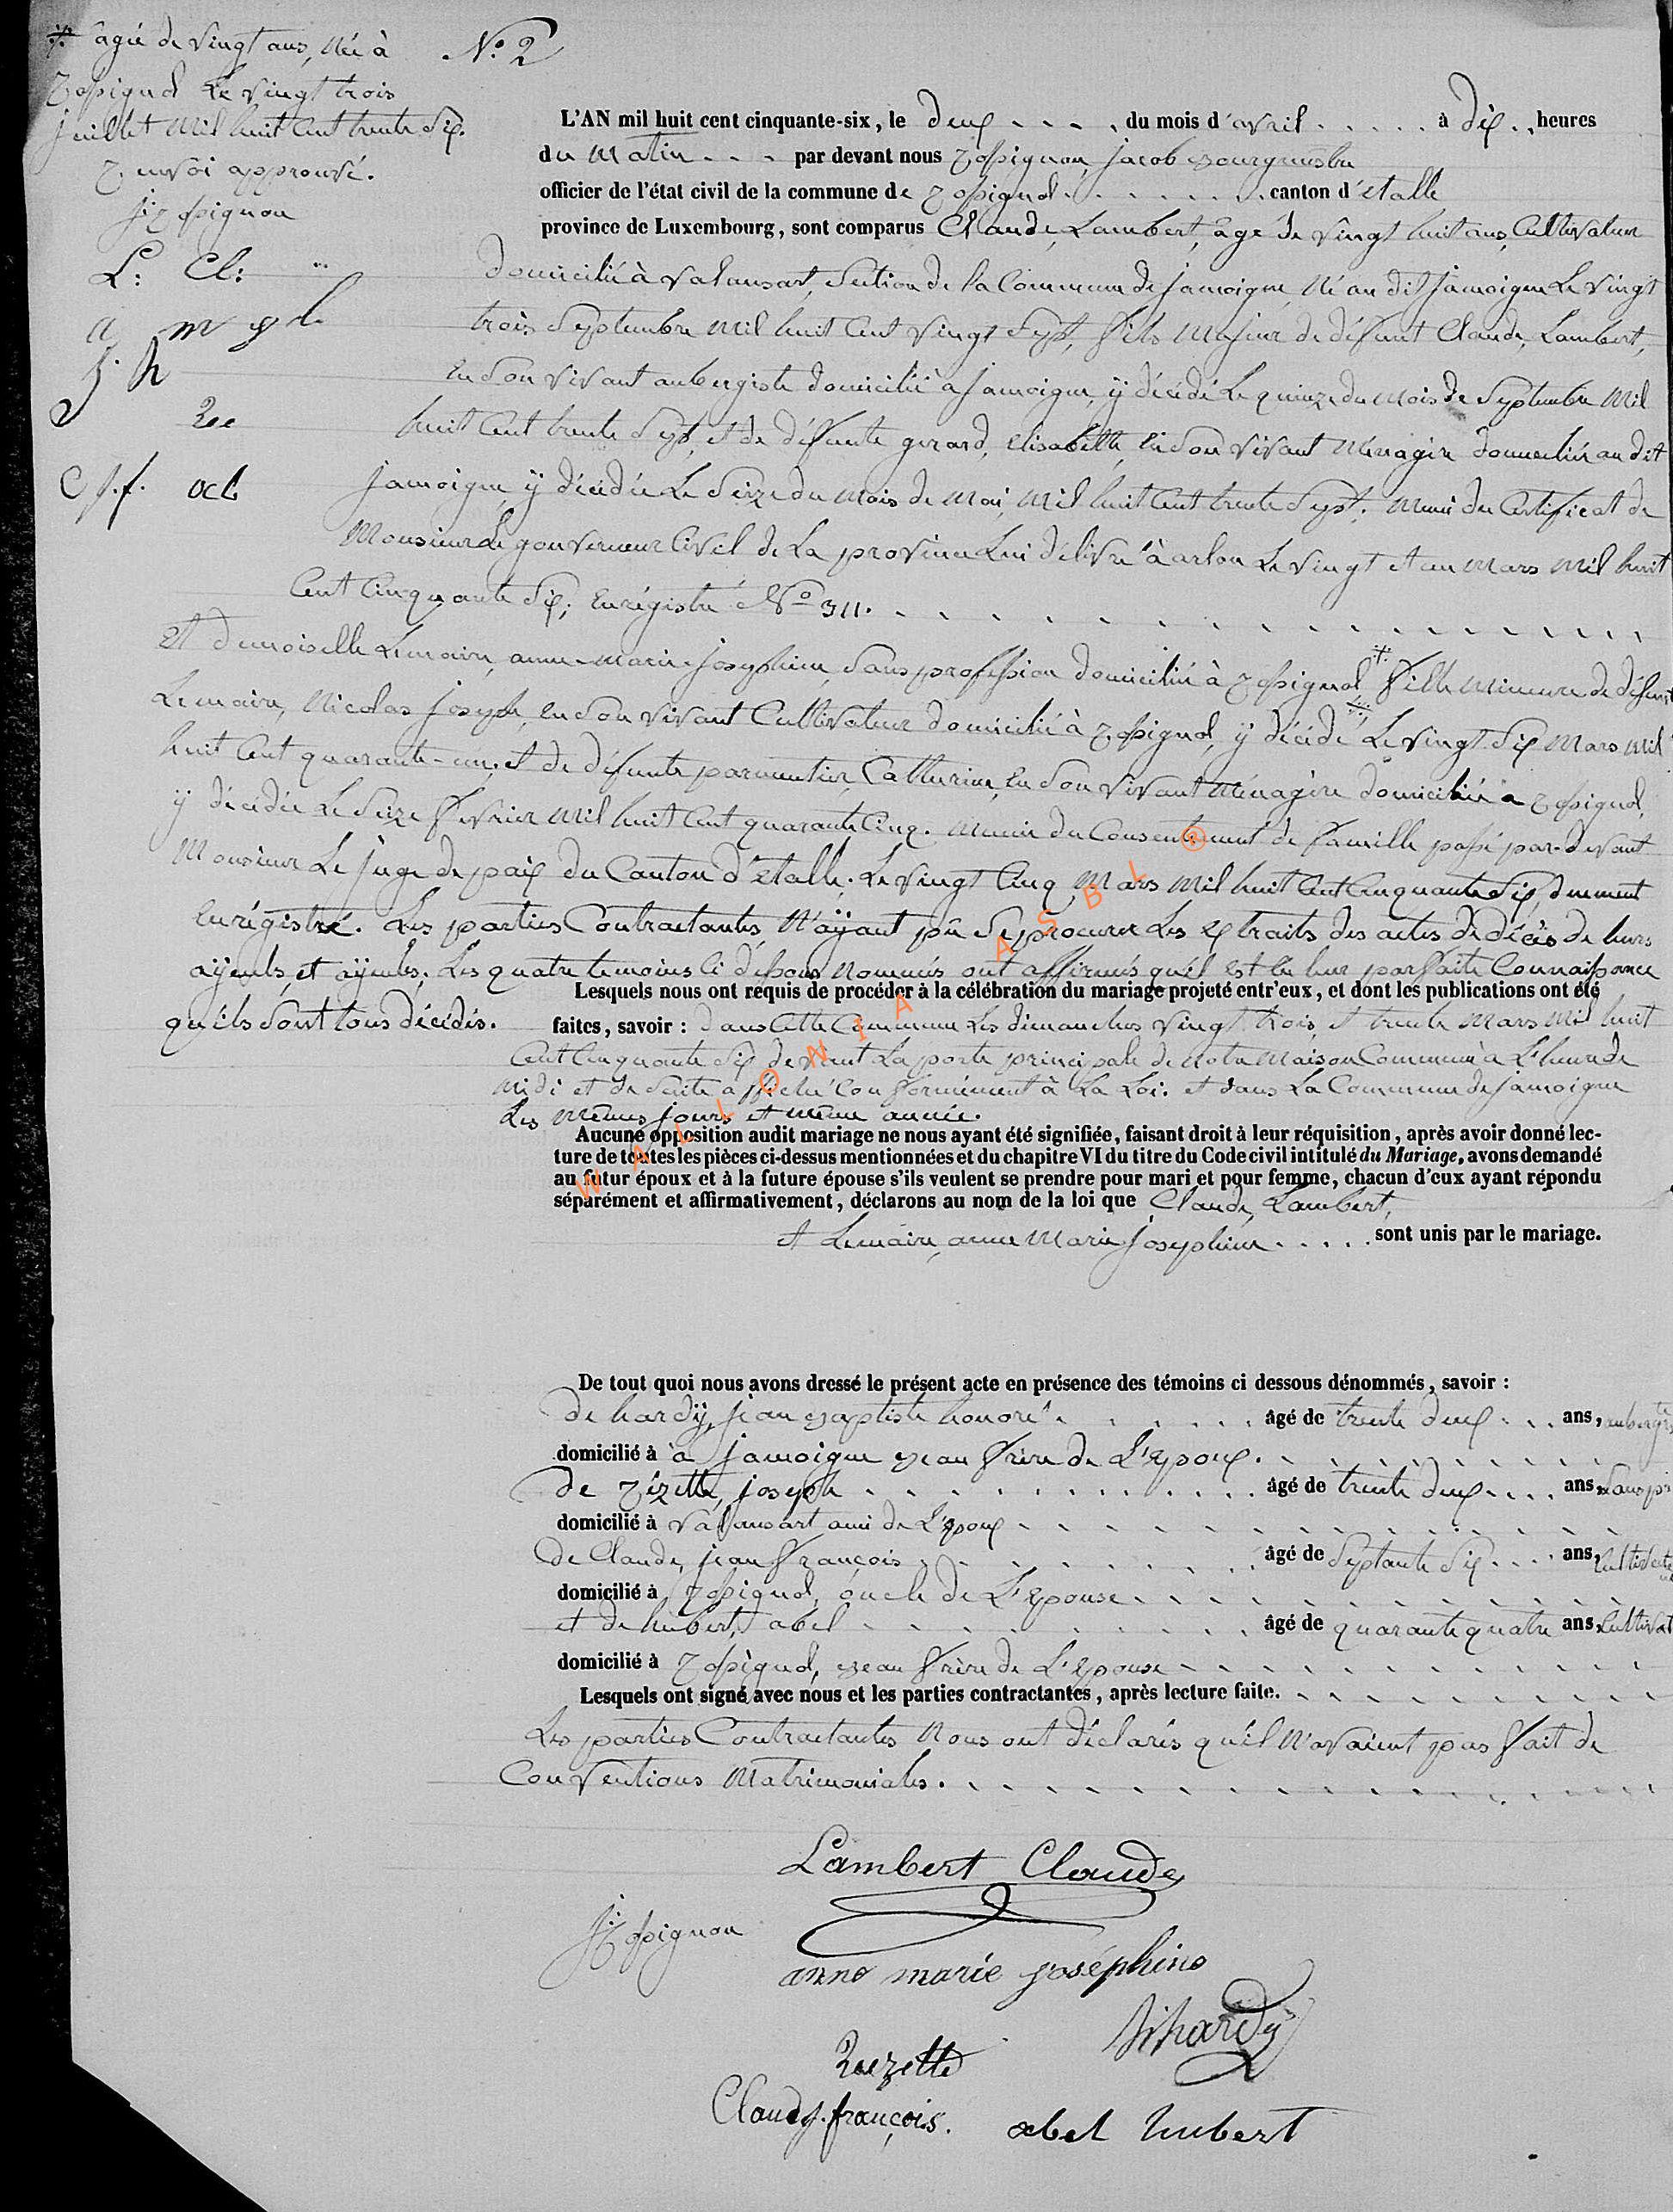 ⁜ agée de vingt ans, née à
Rossignol le vingt trois
juillet mil huit cent trente six.
Renvoi approuvé.
J: Rossignon
L: Cl:
a m j l
J. h
Ree
C J.f. ach
N.º 2
L'AN mil huit cent cinquante-six, le deux . . . . du mois d'avril . . . . . à dix . . heures
du Matin . . . par devant nous Rossignon, jacob Bourgmestre
officier de l'état civil de la commune de Rossignol . . . . . . . canton d'étalle
province de Luxembourg, sont comparus Claude, Lambert, âgé de vingt huit ans, Cultivateur
domicilié à Valansart, Section de la Commune de jamoigne, Né au dit jamoigne Le vingt
trois Septembre mil huit Cent vingt Sept, fils Majeur de défunt Claude, Lambert,
en Son vivant aubergiste domicilié à jamoigne, ÿ décédé Le quinze du Mois de Septembre Mil
huit Cent trente Sept, et de défunte gerard, elisabeth, en Son vivant Ménagère domiciliée au dit
jamoigne, ÿ décédée Le Seize du Mois de Mai, Mil huit Cent trente Sept. Muni du Certificat de
Monsieur Le gouverneur Civil de La province Lui délivré à arlon Le vingt et un Mars Mil huit
Cent Cinquante Six; Enrégistré Nº 311.
Et demoiselle Lemaire, anne-marie-josephine, Sans profession domiciliée à Rossignol ⁜ fille Mineure de défunt
Lemaire, Nicolas joseph, en Son vivant Cultivateur domicilié à Rossignol, ÿ décédé Le vingt Six Mars Mil
huit Cent quarante-un, et de défunte parmentier, Catherine, en Son vivant Ménagère domiciliée a Rossignol,
ÿ décédée Le Seize fevrier Mil huit Cent quarante Cinq. Munie du Consentement de famille passé par-devant
Monsieur Le juge de paix du Canton d'étalle. Le vingt Cinq Mars Mil huit Cent Cinquante Six, duement
Enrégistré. Les parties Contractantes N'aÿant pû Se procurer Les Extraits des actes de décès de leurs
aÿeuls, et aÿeules. Les quatre temoins Ci dessous Nommés ont affirmés qu'el est en leur parfaite Connaissance
qu'ils Sont tous décédés.
Lesquels nous ont requis de procéder à la célébration du mariage projeté entr'eux, et dont les publications ont été
faites, savoir : dans Cette Commune Les dimanches vingt trois et trente Mars Mil huit
Cent Cinquante Six devant La porte principale de Notre Maison Commune à L'heure de
Midi et de Suite affiché Conformément à La Loi. et dans La Commune de jamoigne
Les Mêmes jours et même année.
Aucune opposition audit mariage ne nous ayant été signifiée, faisant droit à leur réquisition, après avoir donné lec-
ture de toutes les pièces ci-dessus mentionnées et du chapitre VI du titre du Code civil intitulé du Mariage, avons demandé
au futur époux et à la future épouse s'ils veulent se prendre pour mari et pour femme, chacun d'eux ayant répondu
séparément et affirmativement, déclarons au nom de la loi que Claude, Lambert,
et Lemaire, anne Marie josephine . . . . . sont unis par le mariage.
De tout quoi nous avons dressé le présent acte en présence des témoins ci dessous dénommés, savoir :
de hardÿ, jean Baptiste honoré . . . . . . âgé de trente deux . . . ans, aubergiste
domicilié à à jamoigne Beau frère de L'Epoux.
de Rézette, joseph . . . . . . . . . . . âgé de trente deux . . . . ans, Sans pr
domicilié à Valansart ami de L'Epoux
de Claude, jean françois . . . . . . . . âgé de Septante Six . . . . ans, Cultivateur
domicilié à Rossignol, oncle de L'Epouse
et de hubert, abel . . . . . . . . . âgé de quarante quatre ans, Cultivat
domicilié à Rossignol, Beau frère de L'Epouse
Lesquels ont signé avec nous et les parties contractantes, après lecture faite.
Les parties Contractantes Nous ont déclarés qu'el N'avaient pas fait de
Conventions Matrimoniales.
Lambert Claude
J: Rossignon
anne marie joséphine
hardÿ
Rezette
Claude J. françois.
abel hubert
WALLONIA ASBL ®